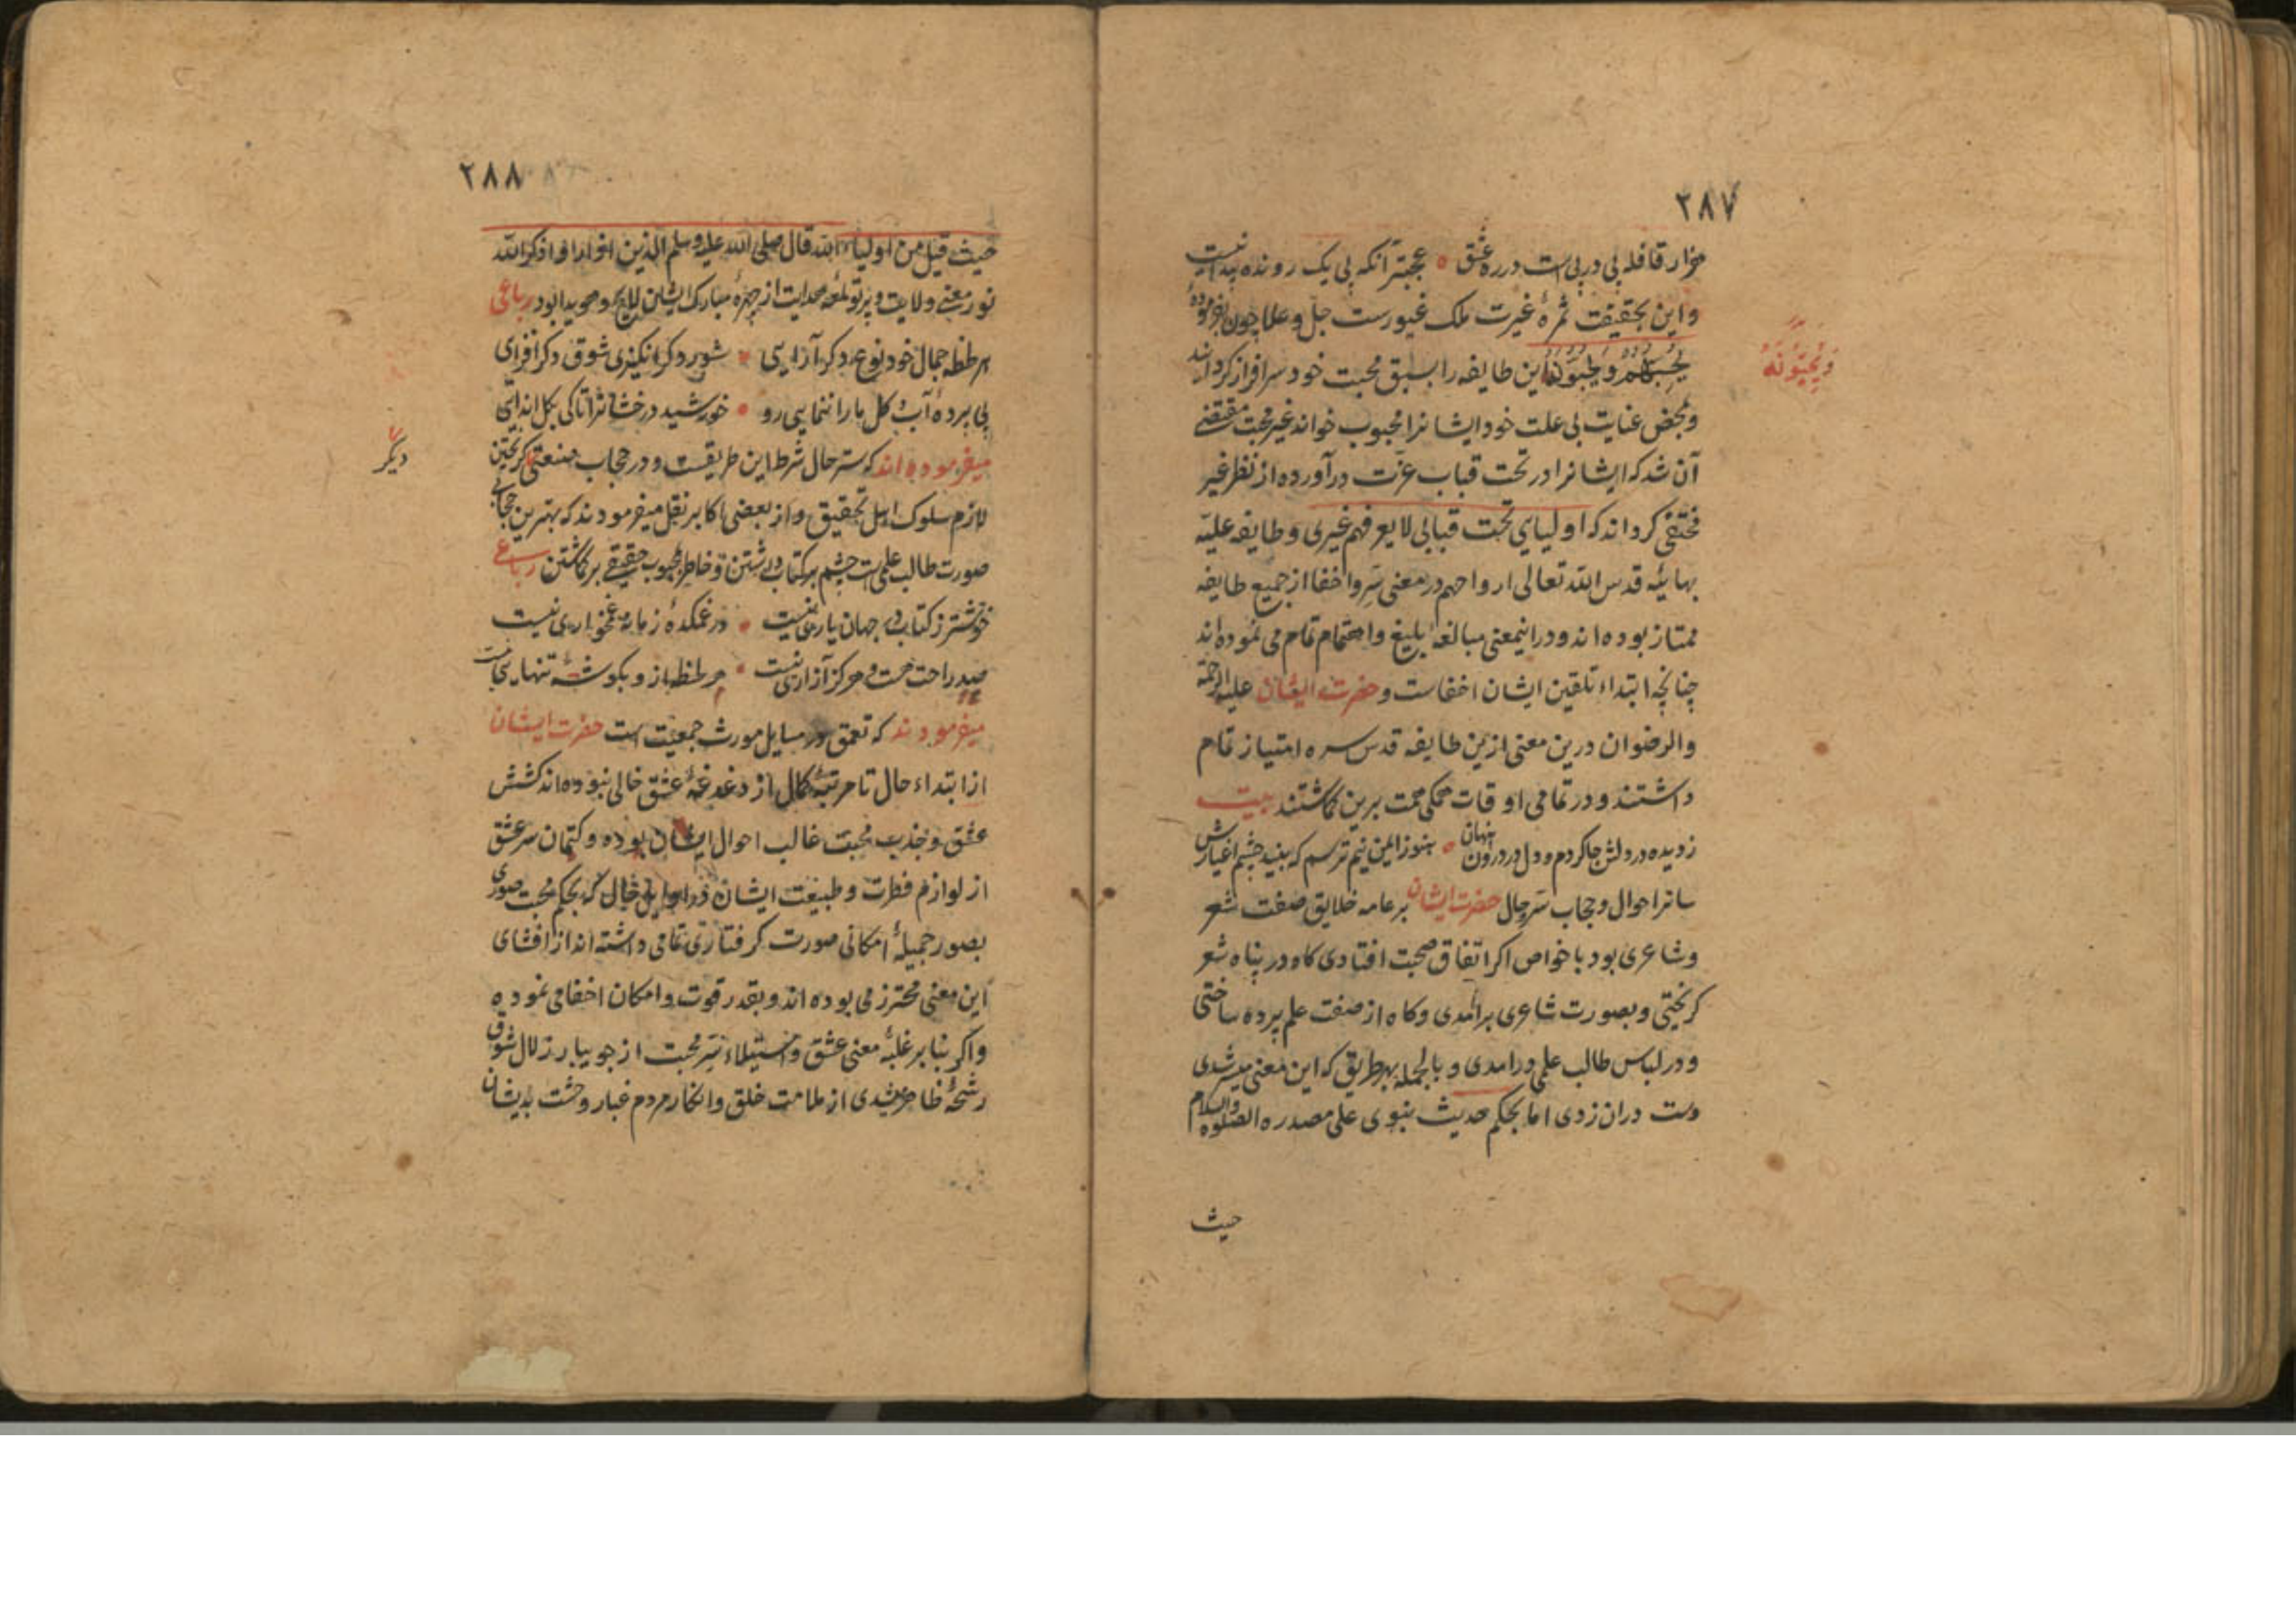 ۲۸۷
هزار قافله پی در پی است در ره عشق ٥ عجبتر آنکه پی یک رونده پیدا نیست
و این بحقیقت ثمرهٔ غیرت ملک غیورست جل و علا چون بفرمودهٔ
یحبهم و یحبونه این طایفه را بسبق محبت خود سرافراز گردانید
ویحبونه
و بمحض عنایت بی علت خود ایشانرا محبوب خواند غیر محبت مقتضی
آن شد که ایشانرا در تحت قباب عزت درآورده از نظر غیر
مختفی گرداند که اولیای تحت قبابی لا یعرفهم غیری و طایفه علیّه
بهائیه قدس الله تعالی ارواحهم در معنی سَر و اخفا از جمیع طایفه
ممتاز بوده اند و در اینمعنی مبالغه بلیغ و اهتمام تمام می نموده اند
چنانچه ابتداء تلقین ایشان اخفاست و حضرت ایشان علیه الرحمة
والرضوان درین معنی ازین طایفه قدس سره امتیاز تمام
داشتند و در تمامی اوقات همگی همت برین گماشتند بیت
در دلش جا کردم و دل در درون پنهان ٥ هنوز ایمن نیم ترسم که بیند چشم اغیارش
ساتر احوال و حجاب سَر حال حضرت ایشان بر عامه خلایق صفت شعر
و شاعری بود با خواص اگر اتفاق صحبت افتادی گاه در پناه شعر
گریختی و بصورت شاعری برآمدی و گاه از صفت علم پرده ساختی
و در لباس طالب علمی درامدی و بالجمله بهر طریق که این معنی میسر شدی
دست دران زدی اما بحکم حدیث نبوی علی مصدره الصلوه والسلام
حیث
۲۸۸
حیث قیل من اولیاء الله قال صلی الله علیه وسلم الذین اذا راوا ذکر الله
نور معنی ولایت و پرتو لمعه هدایت از چهرهٔ مبارک ایشان لایح و هویدا بود رباعی
هر لحظه جمال خود نوع دگر آرایی شور دگر انگیزی شوق دگر افزای
بی پرده آب و گل ما را ننمایی رو ٥ خورشید درخشانرا تا کی بگل اندایی
دیگر
میفرموده اند که ستر حال شرط این طریقست و در حجاب صنعتی گریختن
لازم سلوک اهل تحقیق و از بعضی اکابر نقل میفرمودند که بهترین حجابی
صورت طالب علمیست چشم بر کتاب داشتن و خاطر بمحبوب حقیقی برگماشتن رباعی
خوشتر ز کتاب در جهان یاری نیست در غمکدهٔ زمانه غمخواری نیست
هر لحظه ازو بگوشهٔ تنهایی صد راحت هست و هرگز آزاری نیست
میفرمودند که تعمق در مسایل مورث جمعیت است حضرت ایشان
از ابتداء حال تا مرتبهٔ کمال از دغدغهٔ عشق خالی نبوده اند کشش
عشق و جذب محبت غالب احوال ایشان بوده و کتمان سر عشق
از لوازم فطرت و طبیعت ایشان در اوایل حال که بحکم محبت صوری
بصور جمیلهٔ امکانی صورت گرفتاری تمامی داشته اند از افشای
این معنی محترز می بوده اند و بقدر قوت و امکان اخفا می نموده
و اگر بنا بر غلبهٔ معنی عشق و استیلاء سَر محبت از جویبار زلال شوق
رشحهٔ ظاهر میشدی از ملامت خلق و انکار مردم غبار وحشت بدیشان